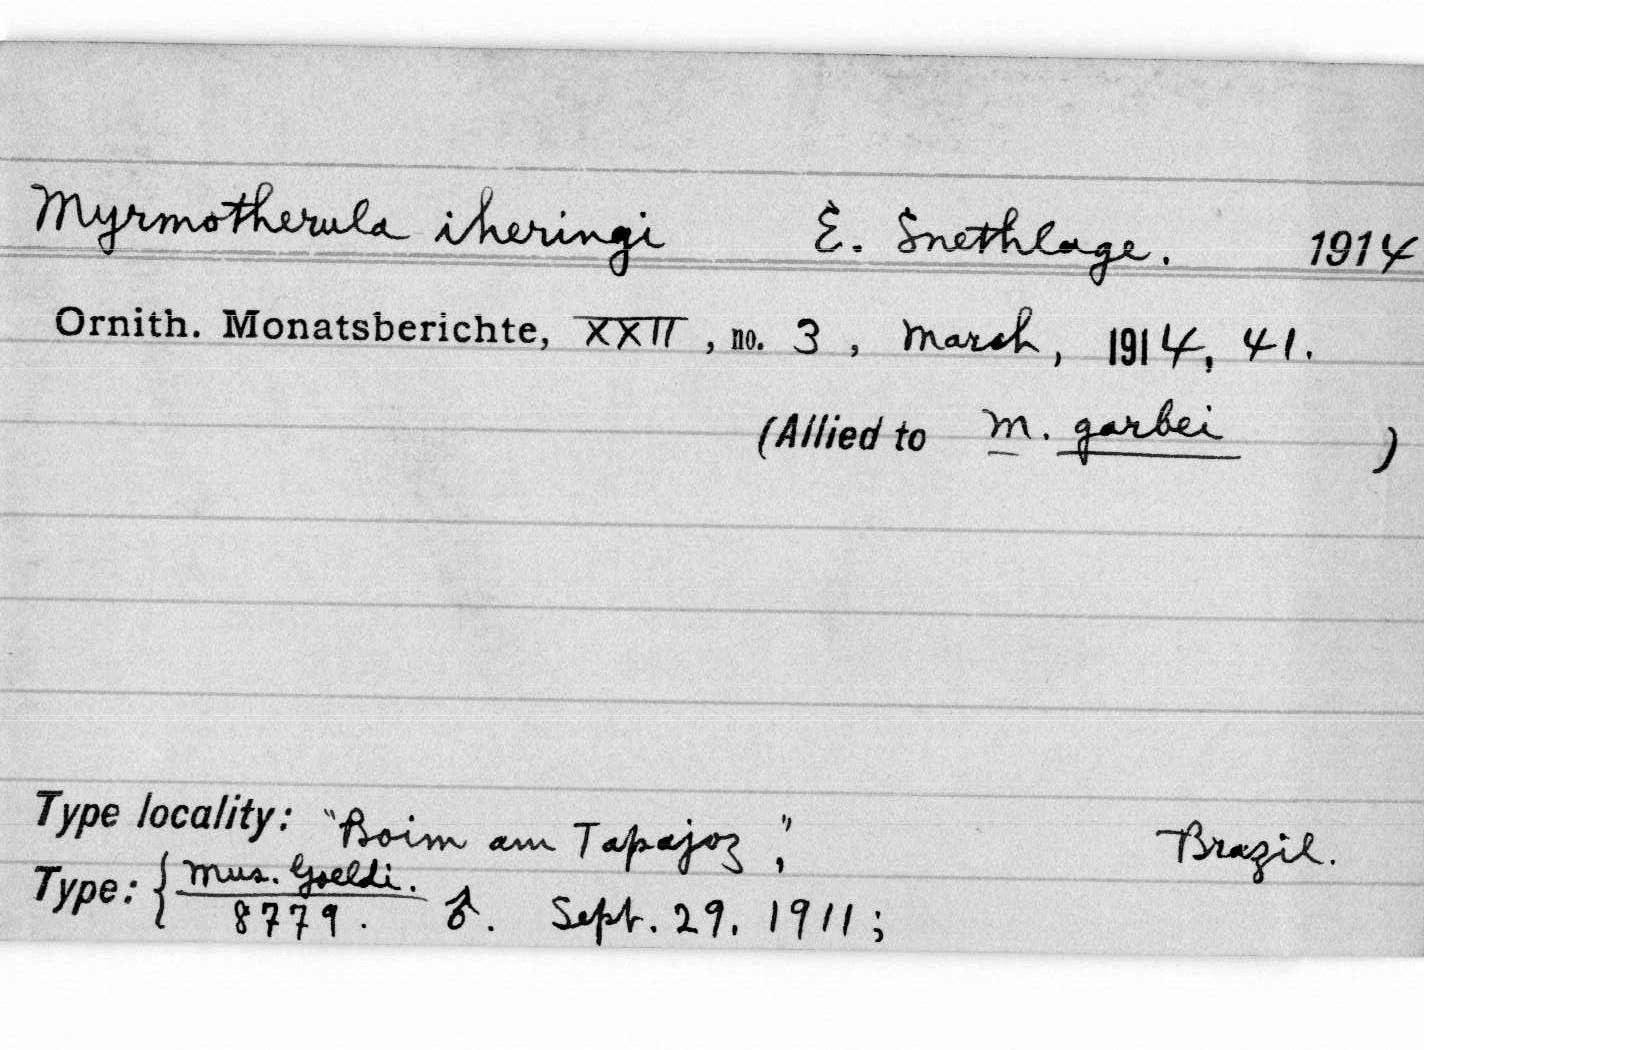 Myrmotherula iheringi E. Snethlage. 1914
Ornith. Monatsberichte, XXII, no. 3, March, 1914, 41.
(Allied to M. garbei )
Type locality: "Boim am Tapajoz," Brazil.
Type: { Mus. Goeldi.
8779. ♂. Sept. 29. 1911;